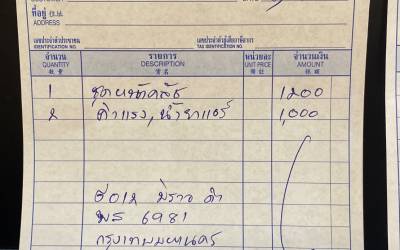 ที่อยู่
ADDRESS
เลขประจำตัวประชาชน เลขประจำตัวผู้เสียภาษีอากร
IDENTIFICATION NO. TAX IDENTIFICATION NO.
จำนวน รายการ หน่วยละ จำนวนเงิน
QUANTITY DESCRIPTION UNIT PRICE AMOUNT
數量
1 ชุดหน้าคลัช 1200
2 ค่าแรง, น้ำยาแอร์ 1,000
อีซูซุ มิราจ ดำ
6981
กรุงเทพมหานคร